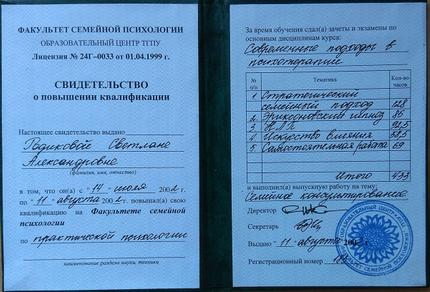 ФАКУЛЬТЕТ СЕМЕЙНОЙ ПСИХОЛОГИИ
ОБРАЗОВАТЕЛЬНЫЙ ЦЕНТР ТГПУ
Лицензия № 24Г–0033 от 01.04.1999 г.
СВИДЕТЕЛЬСТВО
о повышении квалификации
Настоящее свидетельство выдано
Годиковой Светлане
Александровне
(фамилия, имя, отчество)
в том, что он(а) с "14" июля 2002 г.
по "11" августа 2002 г. повышал(а) свою
квалификацию на Факультете семейной
психологии
по практической психологии
наименование раздела науки, техники
За время обучения сдал(а) зачеты и экзамены по
основным дисциплинам курса:
Современные подходы в
психотерапии
№ п/п Тематика Кол-во часов
1 Стратегический
семейный подход 128
2. Эриксоновский гипноз
3. НЛП
4. Искусство влияния
5. Самостоятельная работа 69
Итого 433
и выполнил(а) выпускную работу на тему:
Семейное консультирование
Директор
Секретарь
Выдано "11" августа
Регистрационный номер